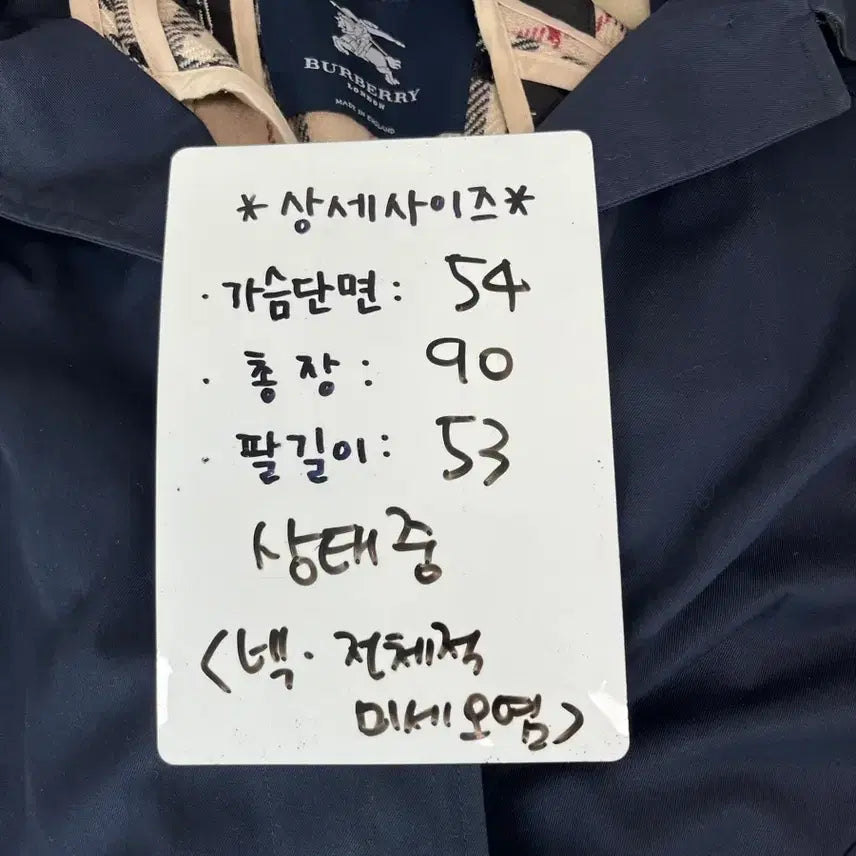 BURBERRY
LONDON
MADE IN ENGLAND
*상세사이즈*
· 가슴단면: 54
· 총장: 90
· 팔길이: 53
상태중
<넥. 전체적
미세오염>